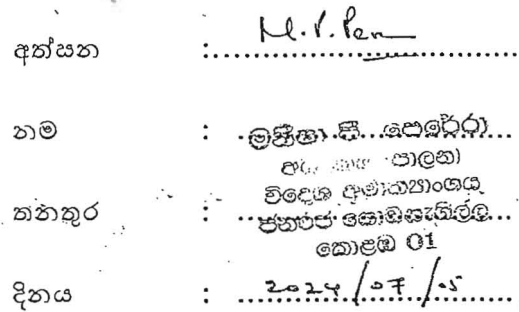 අත්සන :
නම : මහීෂා සී. පෙරේරා
පාලන
විදෙශ අමාත්‍යාංශය
තනතුර : ජනරජ ගොඩනැගිල්ල
කොළඹ 01
දිනය : 2024/07/05